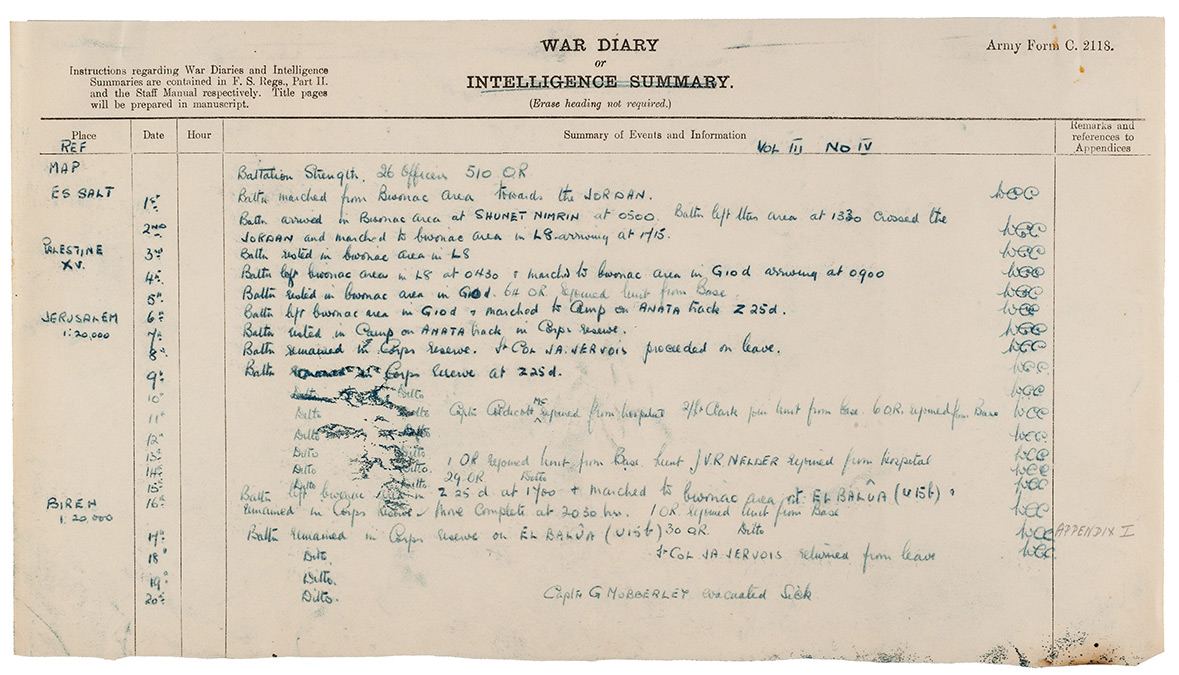 WAR DIARY
or
INTELLIGENCE SUMMARY.
(Erase heading not required.)
Army Form C. 2118.
Instructions regarding War Diaries and Intelligence
Summaries are contained in F. S. Regs., Part II.
and the Staff Manual respectively. Title pages
will be prepared in manuscript.
Place Date Hour Summary of Events and Information Remarks and references to Appendices
REF VOL III NO IV
MAP Battalion Strength. 26 Officers 510 OR
ES SALT 1st Battn marched from Bivouac area towards the JORDAN. WCC
2ND Battn arrived in Bivouac area at SHUNET NIMRIN at 0500. Battn left area at 1330 crossed the
JORDAN and marched to bivouac area in L8 arriving at 1715. WCC
PALESTINE XV. 3rd Battn rested in bivouac area in L8 WCC
4th Battn left bivouac area in L8 at 0430 & marched to bivouac area in G10d arriving at 0900 WCC
5th Battn rested in bivouac area in G10d. 64 OR rejoined Unit from Base. WCC
JERUSALEM 6th Battn left bivouac area in G10d & marched to Camp on ANATA track Z25d. WCC
1:20,000 7th Battn rested in Camp on ANATA track in Corps reserve. WCC
8th Battn remained in Corps Reserve. Lt Col JA. JERVOIS proceeded on leave. WCC
9th Battn remained in Corps Reserve at Z25d. WCC
10th Ditto Ditto WCC
11th Ditto Ditto Captn rejoined from hospital 2/Lt Clark join Unit from base. 6 OR. rejoined from Base WCC
12th Ditto Ditto WCC
13th Ditto Ditto WCC
14th Ditto Ditto. 1 OR rejoined Unit from Base. Lieut J.V.R. NELDER rejoined from Hospital WCC
15th Ditto Ditto 29 OR Ditto WCC
BIREH 16th Battn left bivouac area in Z25d at 1700 & marched to bivouac area at EL BALÛA (U15b) &
1:20,000 remained in Corps Reserve. Move Complete at 2030 hrs. 1 OR rejoined Unit from Base WCC
17th Battn remained in Corps Reserve on EL BALÛA (U15b) 30 OR. Ditto WCC APPENDIX I
18th Ditto. Lt COL JA JERVOIS returned from leave WCC
19th Ditto.
20th Ditto. Captn G MOBBERLEY evacuated Sick.